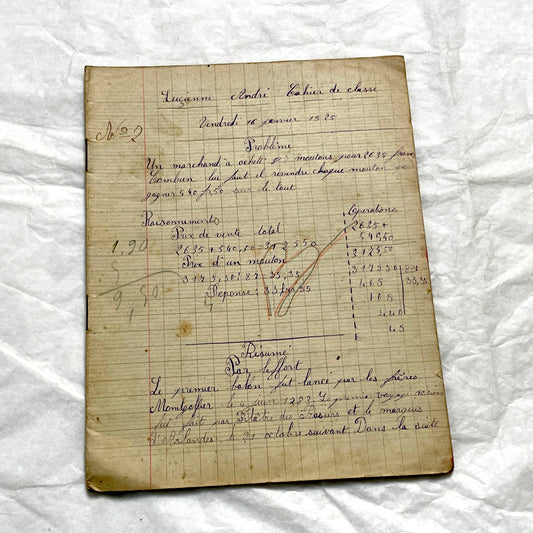 Lucienne André Cahier de classe
Nº 2
Vendredi 16 janvier 1925
Problème
Un marchand a acheté 83 moutons pour 2635 francs
Combien lui faut il revendre chaque mouton pour
gagner 540 f,50 sur le tout
Raisonnements
Opérations
Prix de vente total
2635 +
540,50
1,90
2635 + 540,50 =
Prix d'un mouton
5
Réponse :
9,50
465
105
440
45
Résumé
Par
Le premier balon fut lancé par les frères
Montgolfier le 4 juin 1783. Le premier voyage aérien
fut fait par Pilâtre des Rosiers et le marquis
d'Arlandes, le 21 octobre suivant. Dans la suite